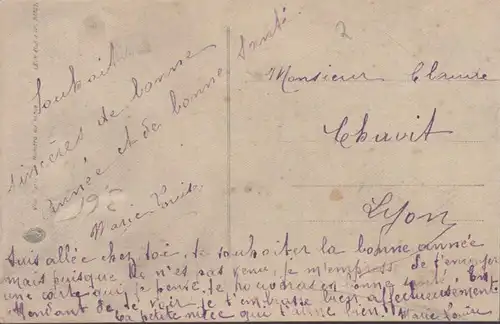 Souhaits
sincères de bonne
année et de bonne santé
Marie Louise
2
Monsieur Claude
Lyon
suis allée chez toi, te souhaiter la bonne année
mais puisque tu n'es pas venu, je m'empresse de t'envoyer
une carte qui je pense, te trouveras en bonne santé. En
attendant de te voir, je t'embrasse bien affectueusement
ta petite nièce qui t'aime bien.
Marie Louise